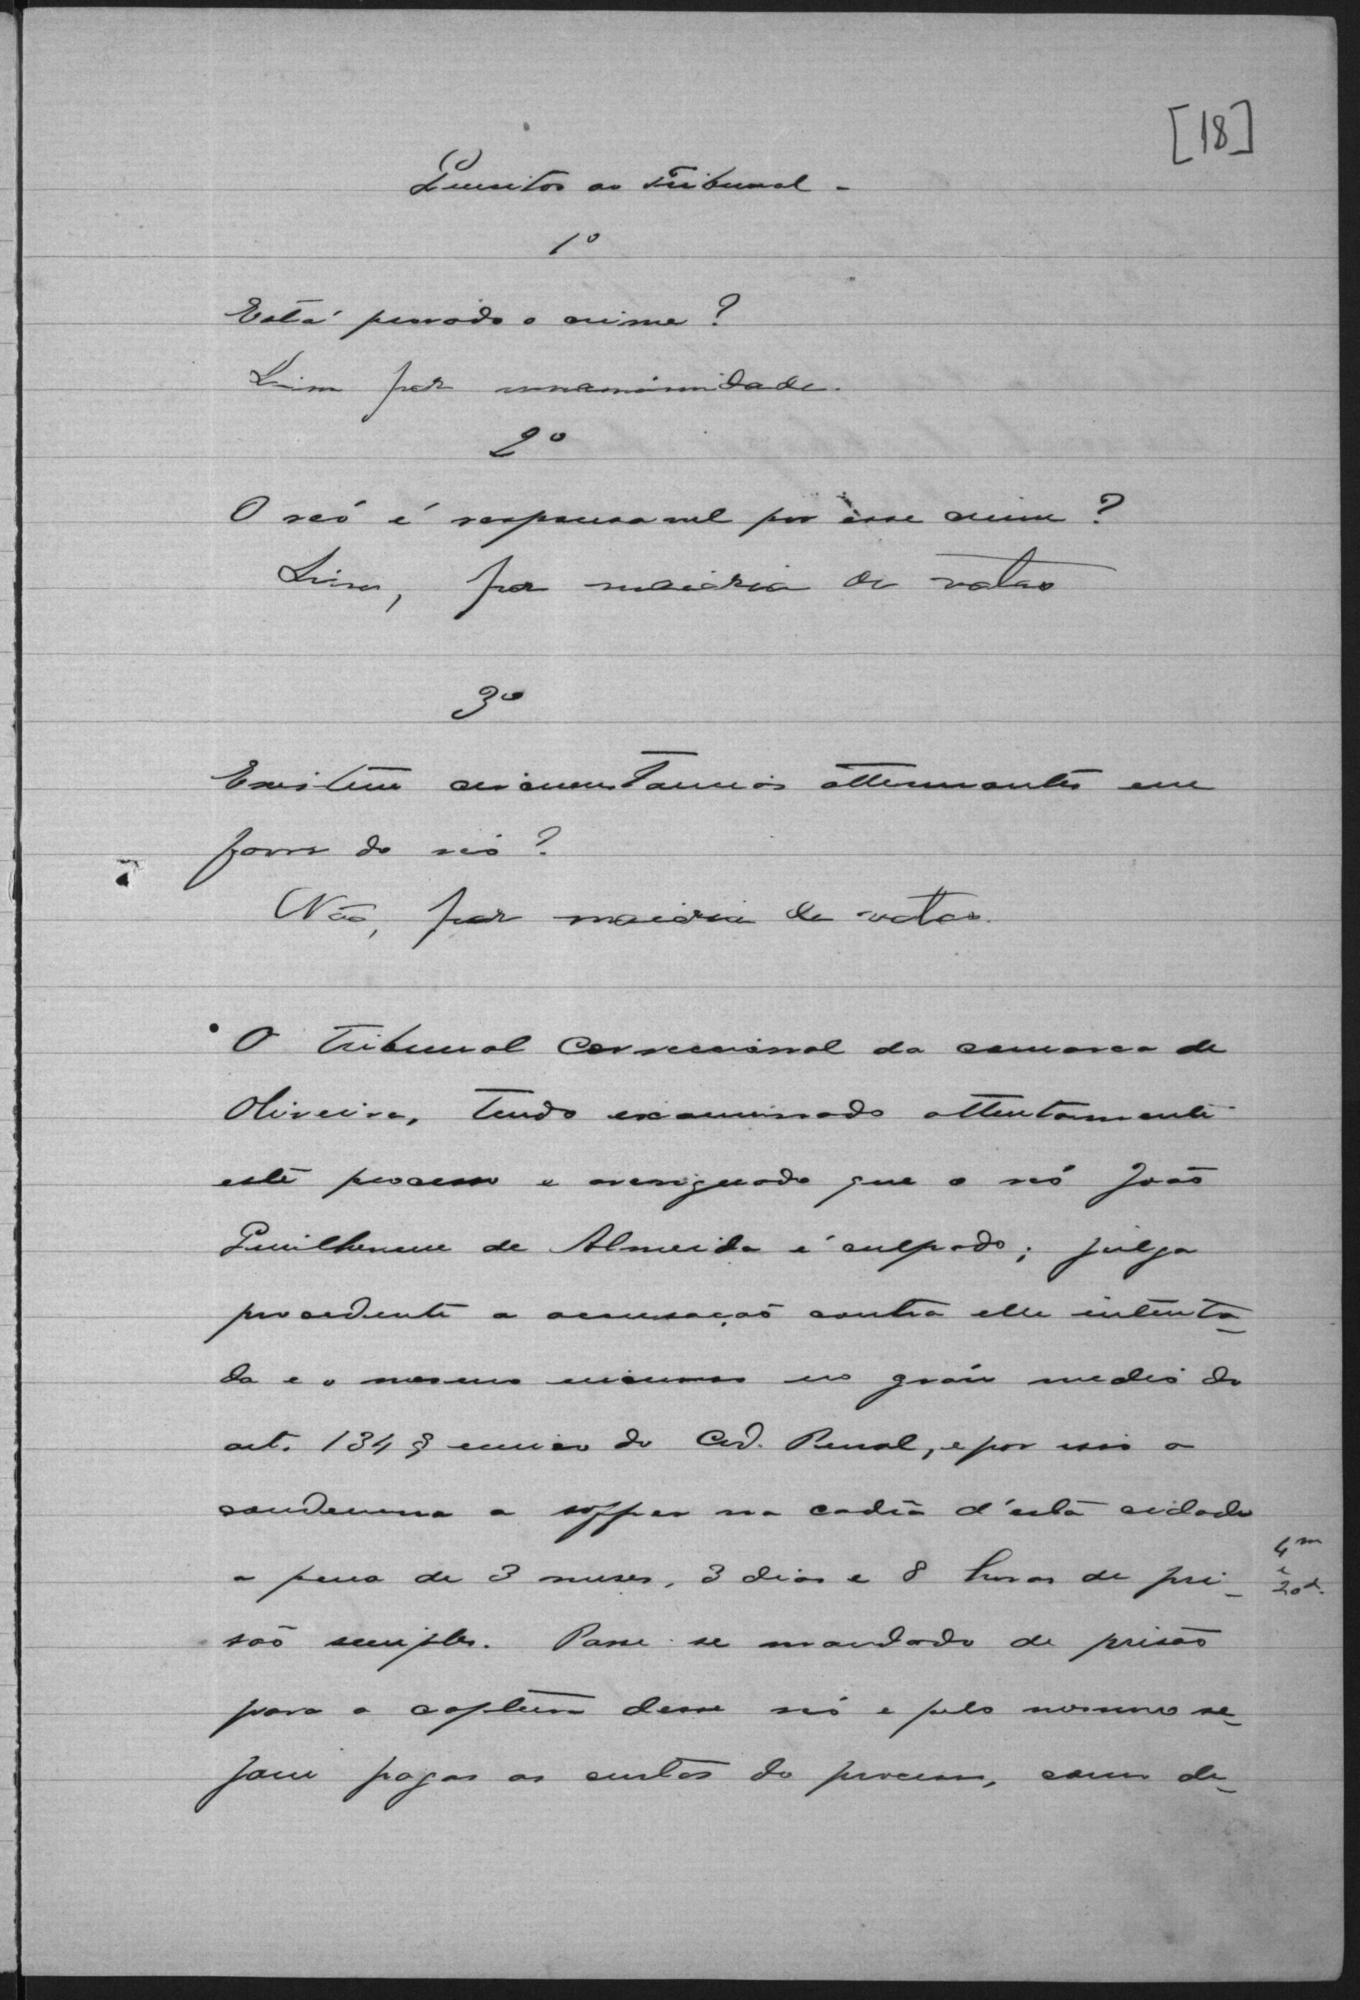 [18]
Quesitos ao Tribunal -
1º
Está provado o crime?
Sim por unanimidade.
2º
O reó é responsavel por esse crime?
Sim, por maioria de votos
3º
Existem circumstancias attenuantes em
favor do reó?
Não, por maioria de votos.
O Tribunal Correcional da comarca de
Oliveira, tendo examinado attentamente
este processo e averiguado que o reó João
Guilherme de Almeida é culpado; julga
procedente a accusação contra elle intenta-
da e o mesmo incurso no gráu medio do
art. 134 § unico do Cod. Penal, e por isso o
condemna a soffrer na cadêa d'esta cidade
a pena de 3 meses, 3 dias e 8 horas de pri-
4m e 20d.
são simples. Passe-se mandado de prisão
para a captura desse reó e pelo mesmo se-
jam pagas as custas do processo, com de-